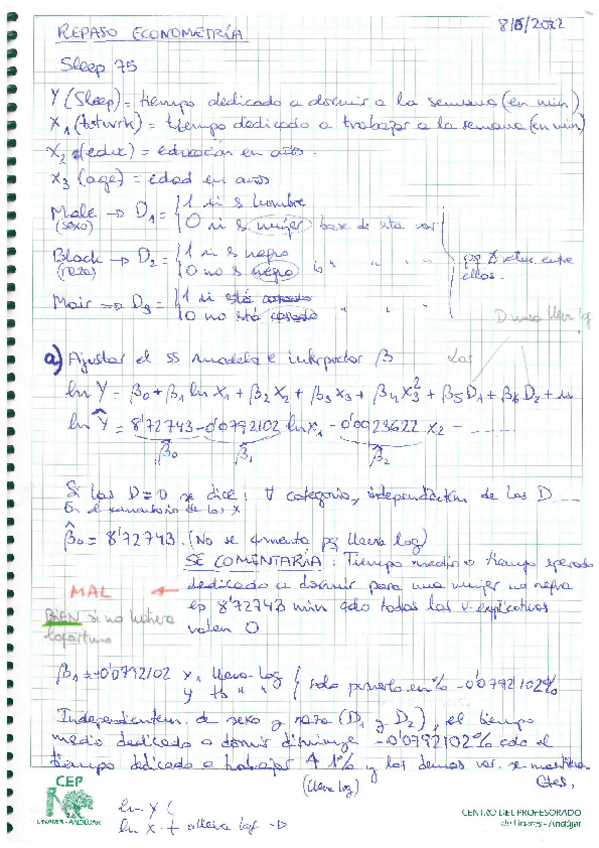 REPASO ECONOMETRÍA 8/6/2022
Sleep 75
Y (Sleep) = tiempo dedicado a dormir a la semana (en min)
X1 (totwrk) = tiempo dedicado a trabajar a la semana (en min)
X2 (educ) = educación en años.
X3 (age) = edad en años
Male → D1 = { 1 si s hombre
(sexo) 0 si s mujer base de esta var
Black → D2 = { 1 si s negro
(raza) 0 no s negro " " "
Mair → D3 = { 1 si está casado
0 no está casado " " "
ellas.
D nunca lleva log
a) Ajustar el ss modelo e interpretar β
ln Y = β0 + β1 ln X1 + β2 X2 + β3 X3 + β4 X3² + β5 D1 + β6 D2 + u
ln Ŷ = 8'72743 - 0'0792102 ln X1 - 0'0023622 X2 - -----
β̂0 β̂1 β̂2
Si las D=0 se dice: ∀ categoría, de las D ---
En el comentario de las X
β̂0 = 8'72743. (No se comenta pq lleva log)
SE COMENTARÍA: Tiempo medio o tiempo esperado
dedicado a dormir para una mujer no negra
MAL ← es 8'72743 min cdo todas las v. explicativas
BIEN si no hubiera valen 0
logaritmo
β1 = -0'0792102 X1 lleva log } solo ponerlo en % -0'0792102%
Y tb " "
Independientem. de sexo y raza (D1 y D2), el tiempo
medio dedicado a dormir disminuye -0'0792102% cdo el
tiempo dedicado a trabajar ↑ 1% y las demás var. se mantienen
(lleva log) ctes.
CEP
LINARES - ANDÚJAR
ln Y
ln X lleva log
CENTRO DEL PROFESORADO
de Linares - Andújar